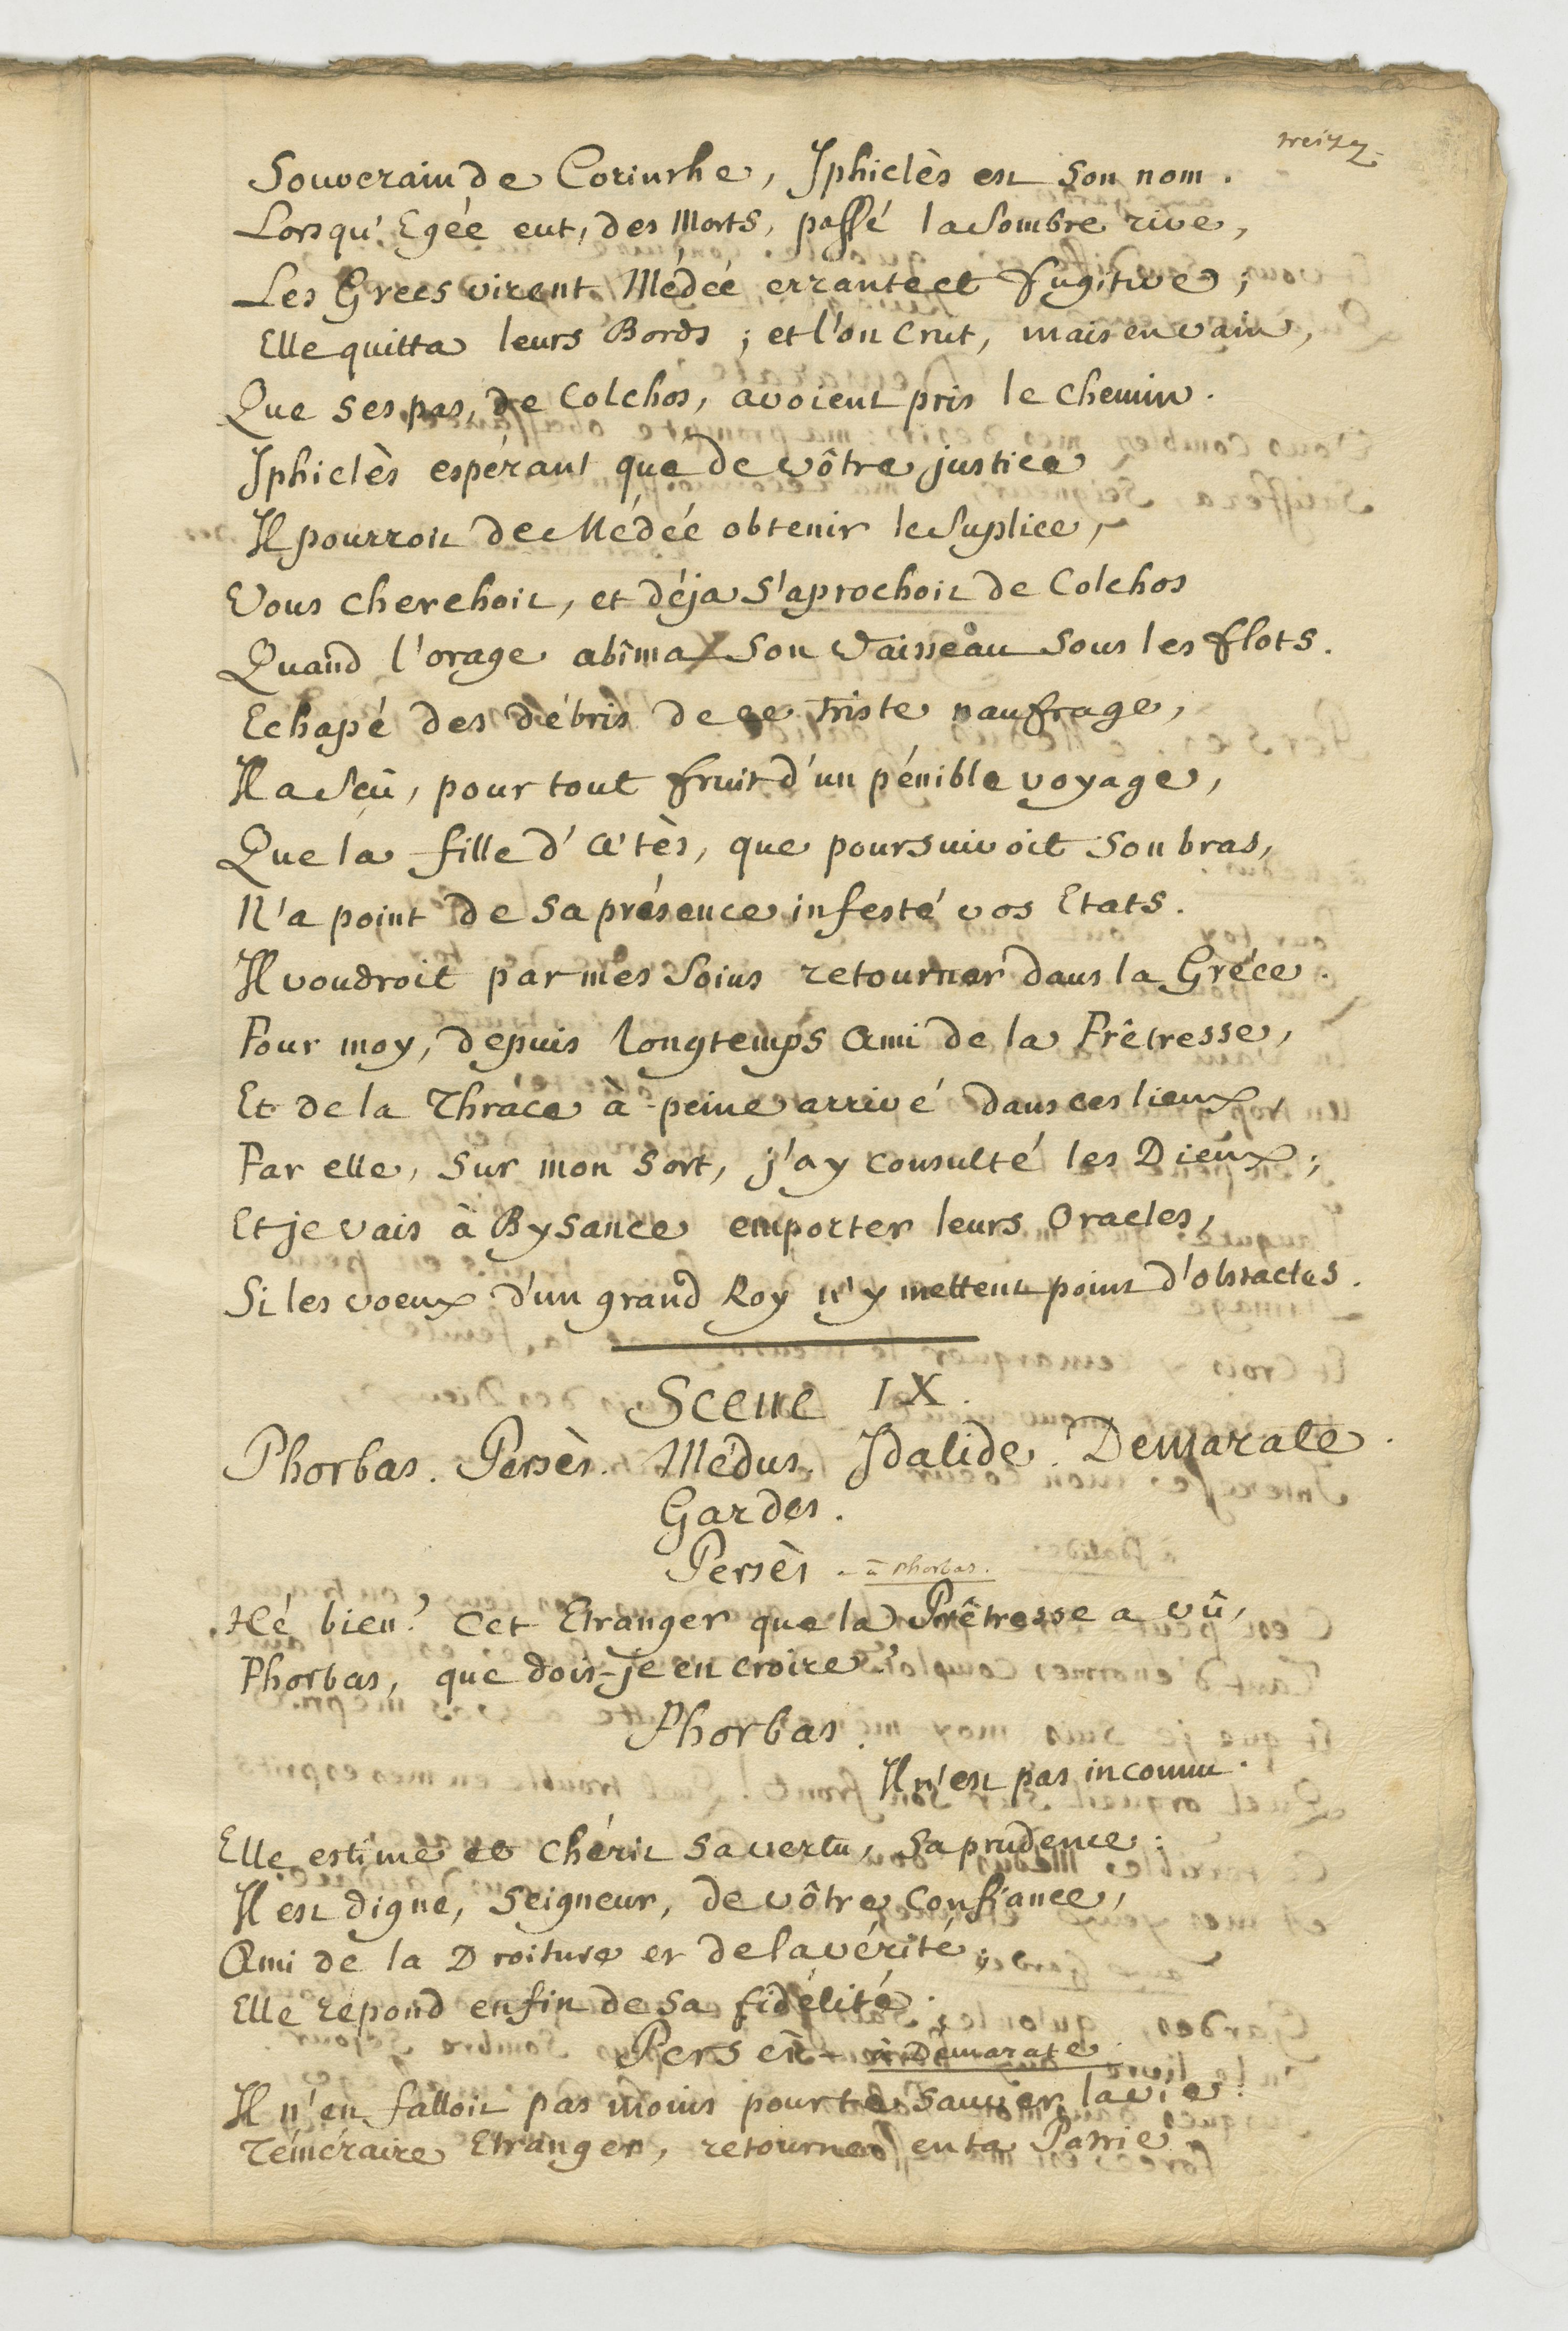 treize
Souverain de Corinthe, Iphiclès est son nom.
Lorsqu'Egée eut, des Morts, passé la sombre rive,
Les Grecs virent Médée errante et fugitive;
Elle quitta leurs Bords; et l'on crut, mais en vain,
Que ses pas, de Colchos, avoient pris le chemin.
Iphiclès espérant que de vôtre justice
Il pourroit de Médée obtenir le Suplice,
Vous cherchoit, et déja s'aprochoit de Colchos
Quand l'orage abîma son Vaisseau sous les flots.
Echapé des débris de ce triste naufrage,
Il a sçû, pour tout fruit d'un pénible voyage,
Que la fille d'Æ'tès, que poursuivoit son bras,
N'a point de sa présence infesté vos Etats.
Il voudroit par mes soins retourner dans la Gréce.
Pour moy, depuis longtemps Ami de la Prêtresse,
Et de la Thrace à-peine arrivé dans ces lieux,
Par elle, sur mon sort, j'ay consulté les Dieux;
Et je vais à Bysance emporter leurs Oracles,
Si les voeux d'un grand Roy n'y mettent point d'obstacles.
Scene IX.
Phorbas. Persès. Médus. Idalide. Demarate.
Gardes.
Persès - à Phorbas.
Hé bien? Cet Etranger que la Prêtresse a vû,
Phorbas, que dois-je en croire?
Phorbas.
Il n'est pas inconnu.
Elle estime et chérit sa vertu, sa prudence:
Il est digne, Seigneur, de vôtre confiance,
Ami de la Droiture et de la vérité;
Elle répond enfin de sa fidélité.
Persès - à Demarate.
Il n'en falloit pas moins pour te sauver la vie.
Téméraire Etranger, retourne en ta Patrie